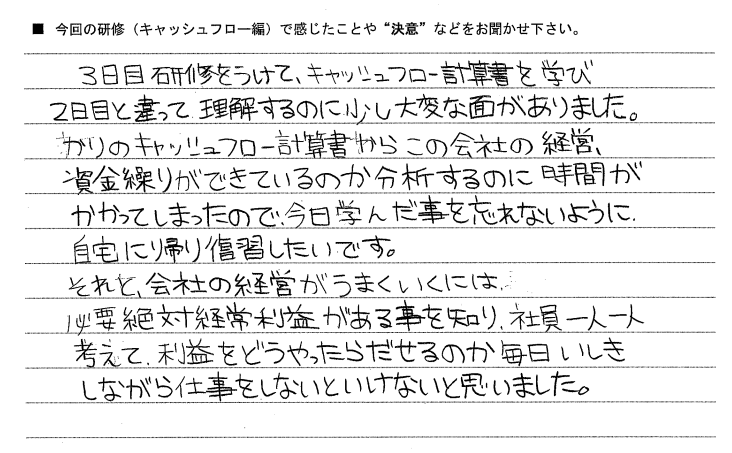 ■ 今回の研修（キャッシュフロー編）で感じたことや“決意”などをお聞かせ下さい。
3日目研修をうけて、キャッシュフロー計算書を学び
2日目と違って理解するのに少し大変な面がありました。
かりのキャッシュフロー計算書からこの会社の経営、
資金繰りができているのか分析するのに時間が
かかってしまったので、今日学んだ事を忘れないように、
自宅に帰り復習したいです。
それと、会社の経営がうまくいくには、
必要絶対経常利益がある事を知り、社員一人一人
考えて、利益をどうやったらだせるのか毎日いしき
しながら仕事をしないといけないと思いました。